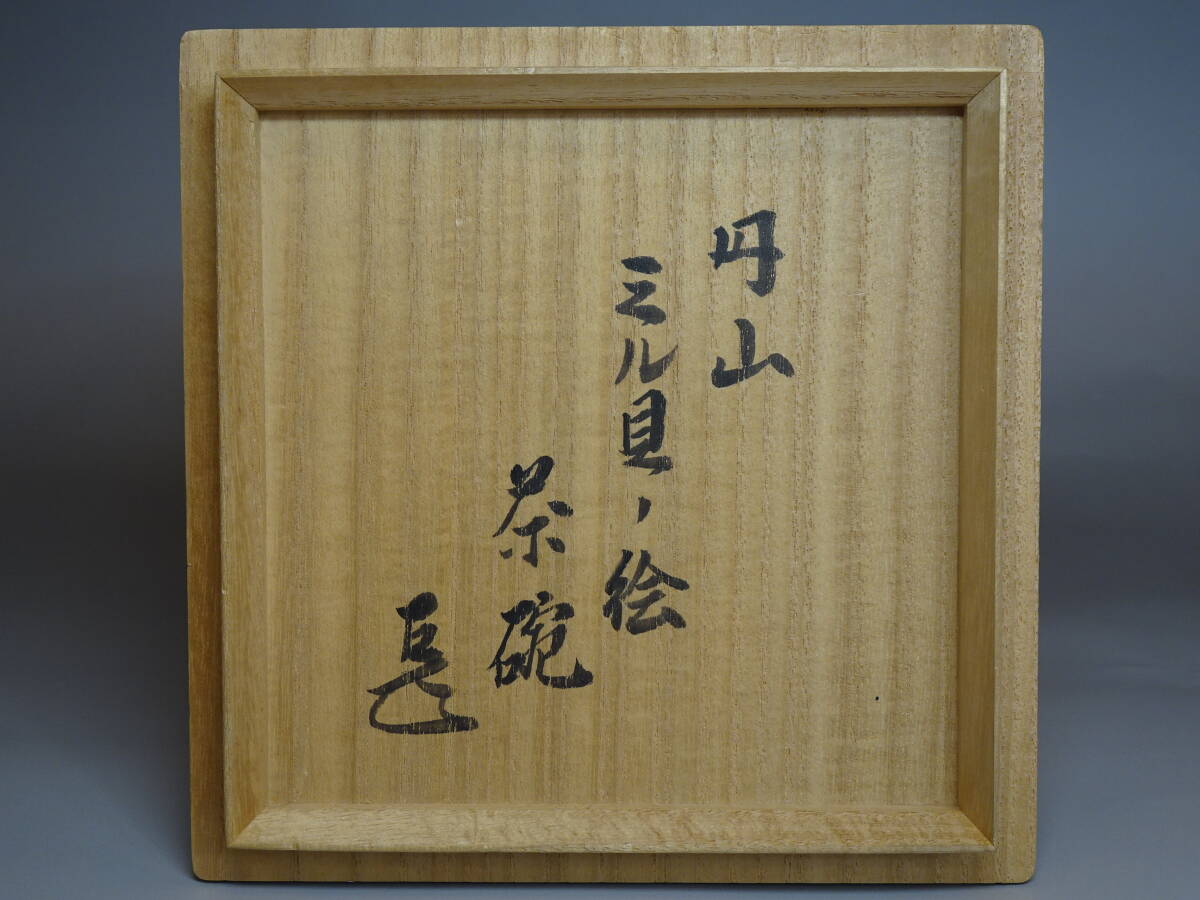 丹山
ミル貝ノ絵
茶碗